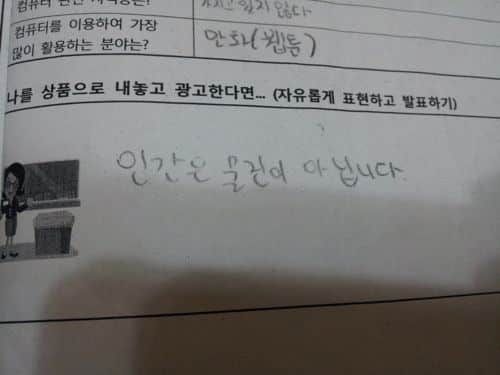 컴퓨터 관련 자격증은?
가지고 있지 않다
컴퓨터를 이용하여 가장
많이 활용하는 분야는?
만화(웹툰)
나를 상품으로 내놓고 광고한다면... (자유롭게 표현하고 발표하기)
인간은 물건이 아닙니다.